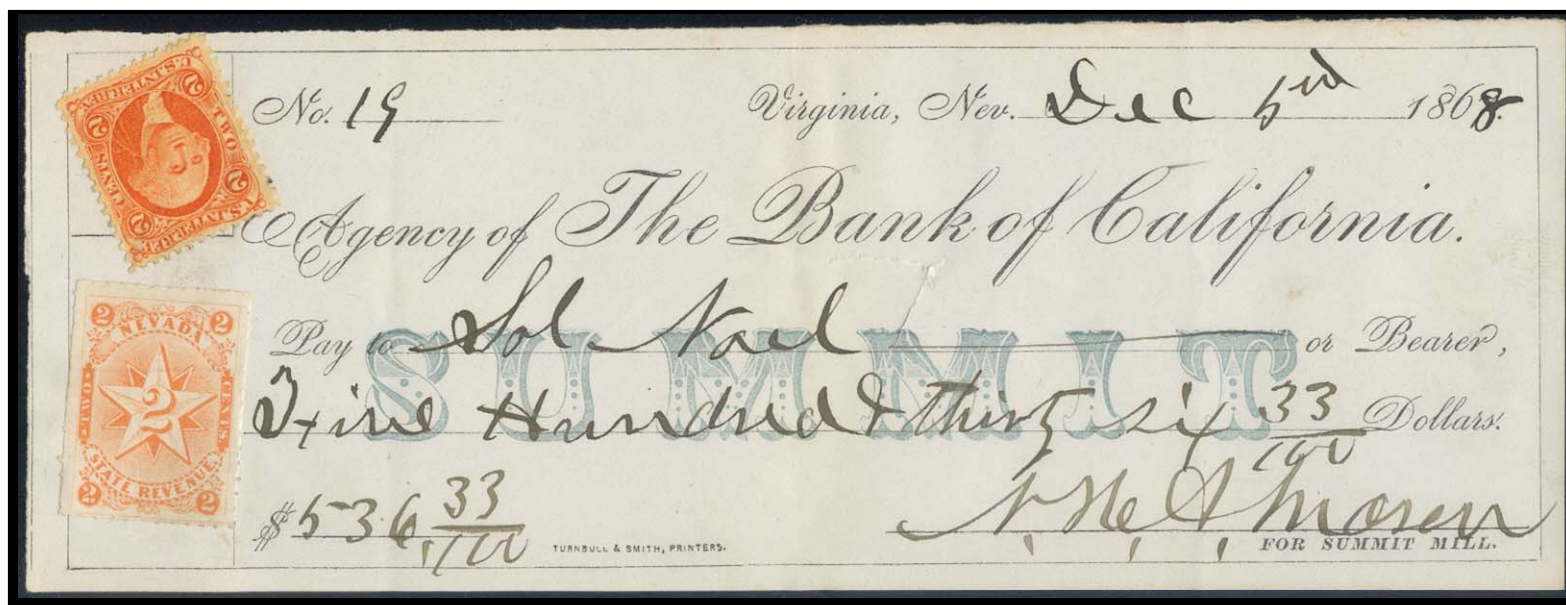 No. 19 Virginia, Nev. Dec 5rd 1868
Agency of The Bank of California.
Pay to Sol Noel or Bearer,
SUMMIT
Five Hundred & thirty six 33/100 Dollars.
$536,33/100
TURNBULL & SMITH, PRINTERS.
FOR SUMMIT MILL.
U.S. INTER. REV.
TWO CENTS
2 2 2 2
U.S. INTER. REV.
2 2
NEVADA
TWO 2 CENTS
STATE REVENUE
2 2